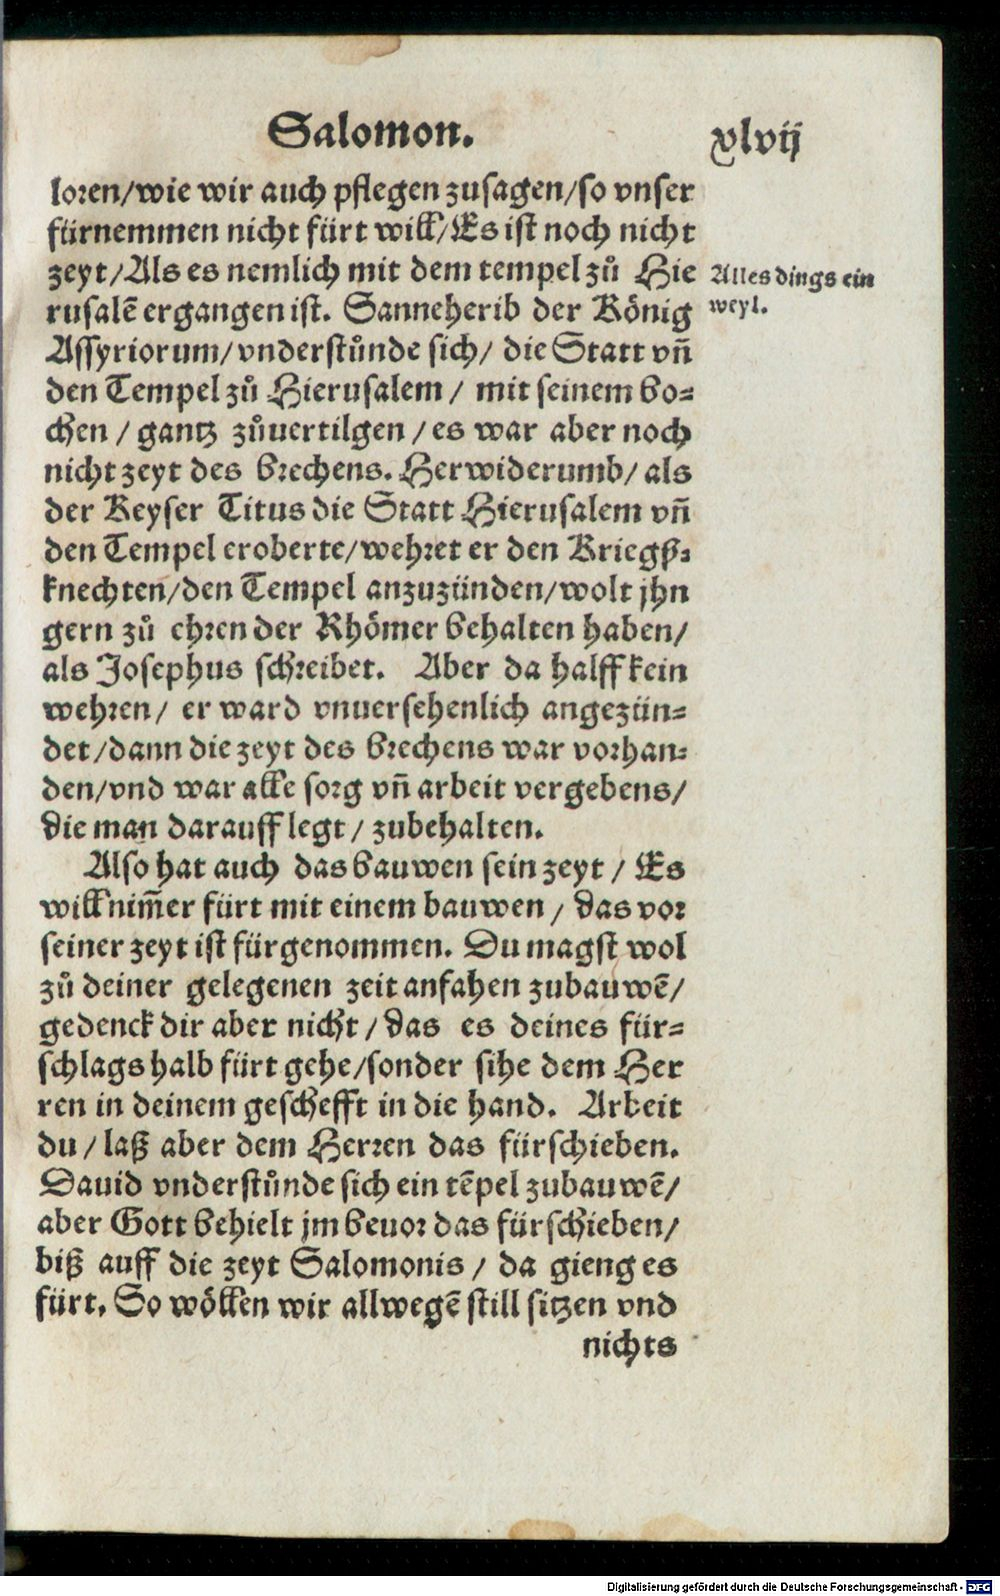 Salomon.
xlvij
loren/wie wir auch pflegen zusagen/so vnser
fürnemmen nicht fürt will/Es ist noch nicht
zeyt/Als es nemlich mit dem tempel zů Hie
rusalē ergangen ist. Sanneherib der König
Assyriorum/vnderstůnde sich/ die Statt vn̄
den Tempel zů Hierusalem / mit seinem bo-
chen / gantz zůuertilgen / es war aber noch
nicht zeyt des brechens. Herwiderumb/ als
der Keyser Titus die Statt Hierusalem vn̄
den Tempel eroberte/wehret er den Kriegß-
knechten/den Tempel anzuzünden/wolt jhn
gern zů ehren der Rhömer behalten haben/
als Josephus schreibet. Aber da halff kein
wehren/ er ward vnuersehenlich angezün-
det/dann die zeyt des brechens war vorhan-
den/vnd war alle sorg vn̄ arbeit vergebens/
die man darauff legt / zubehalten.
Also hat auch das bauwen sein zeyt / Es
will nim̄er fürt mit einem bauwen / das vor
seiner zeyt ist fürgenommen. Du magst wol
zů deiner gelegenen zeit anfahen zubauwē/
gedenck dir aber nicht / das es deines für-
schlags halb fürt gehe/sonder sihe dem Her
ren in deinem geschefft in die hand. Arbeit
du / laß aber dem Herren das fürschieben.
Dauid vnderstůnde sich ein tēpel zubauwē/
aber Gott behielt jm beuor das fürschieben/
biß auff die zeyt Salomonis / da gieng es
fürt. So wöllen wir allwegē still sitzen vnd
nichts
Alles dings ein
weyl.
Digitalisierung gefördert durch die Deutsche Forschungsgemeinschaft - DFG